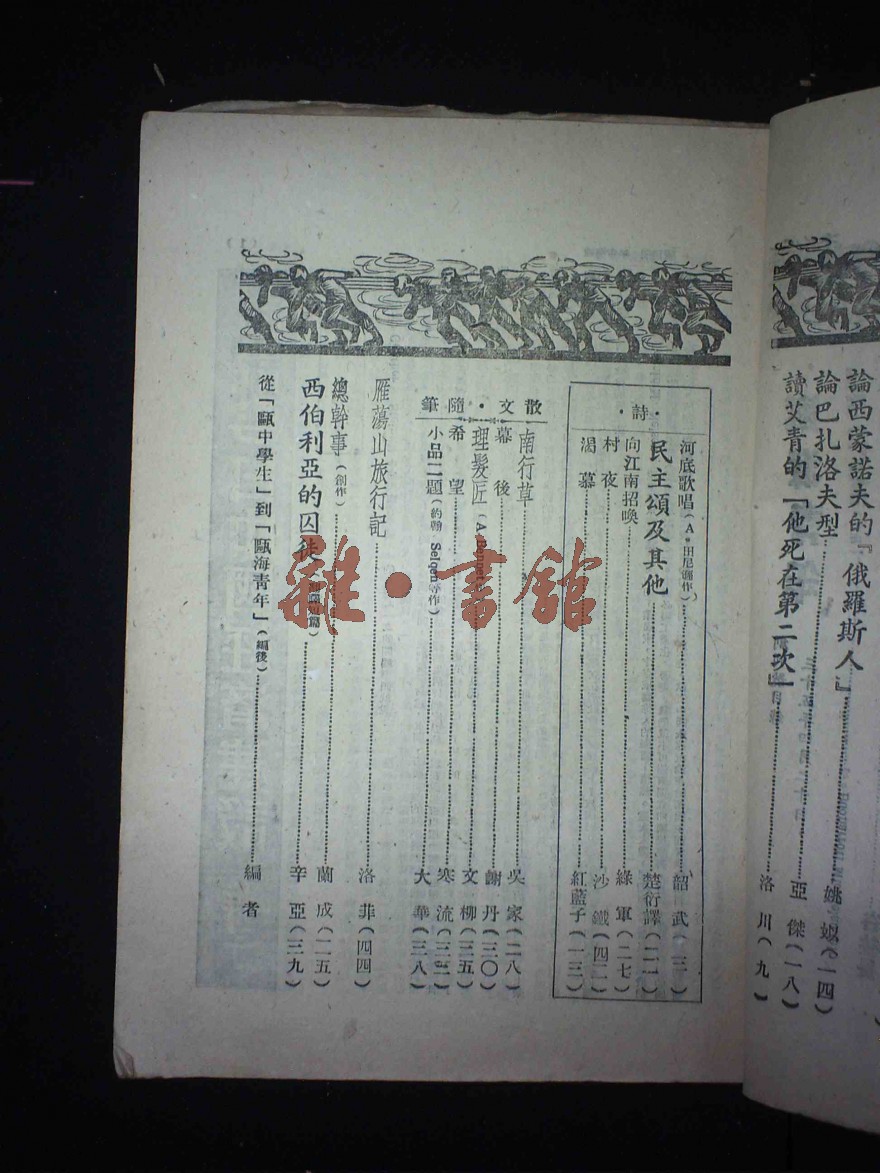 論西蒙諾夫的『俄羅斯人』……姚姒(一四)
論巴扎洛夫型……亞傑(一八)
讀艾青的「他死在第二次」……洛川(九)
·詩·
河底歌唱(A·田尼遜作)……韶武
民主頌及其他……楚衍譯
向江南招喚……綠軍(二七)
村夜……沙鐵(四二)
渴慕……紅藍子(一三)
散文·隨筆
南行草……吳家(二八)
幕後……謝丹(三〇)
理髮匠……文柳(三五)
希望……寒流
小品二題(約翰 Selgen等作)……大華(三八)
雁蕩山旅行記……洛菲(四四)
總幹事(創作)……蘭成(二五)
西伯利亞的囚徒……辛亞(三九)
從「甌中學生」到「甌海青年」(編後)……編者
雜·書館